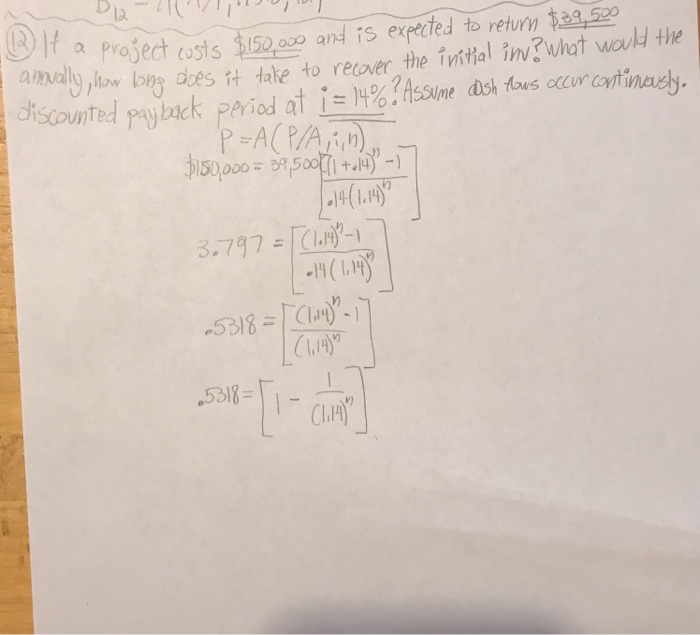 (12) If a project costs $150,000 and is expected to return $39,500
annually, how long does it take to recover the initial inv? What would the
discounted payback period at i = 14%? Assume cash flows occur continuously.
P = A(P/A, i, n)
$150,000 = 39,500[((1+.14)^n - 1) / (.14(1.14)^n)]
3.797 = [((1.14)^n - 1) / (.14(1.14)^n)]
.5318 = [((1.14)^n - 1) / (1.14)^n]
.5318 = [1 - 1 / (1.14)^n]